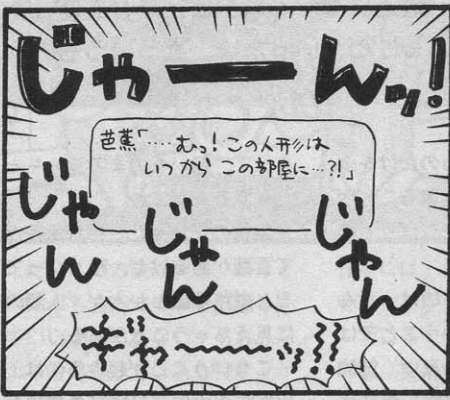 じゃーんッ!
芭蕉「‥‥むっ!この人形は
いつから この部屋に…?!」
じゃん
じゃん
じゃん